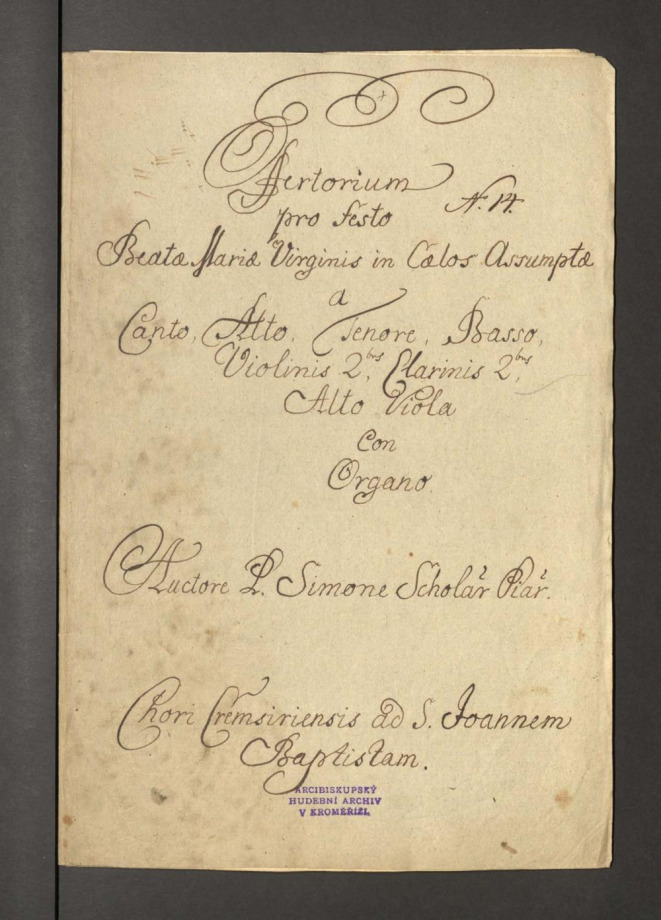 Offertorium
N. 14.
pro festo
Beatæ Mariæ Virginis in Cælos Assumptæ
a
Canto, Alto, Tenore, Basso,
Violinis 2bus, Clarinis 2bus,
Alto Viola
Con
Organo.
Auctore P. Simone Scholar̃ Piar̃.
Chori Cremsiriensis ad S. Joannem
Baptistam.
ARCIBISKUPSKÝ
HUDEBNÍ ARCHIV
V KROMĚŘÍŽI.